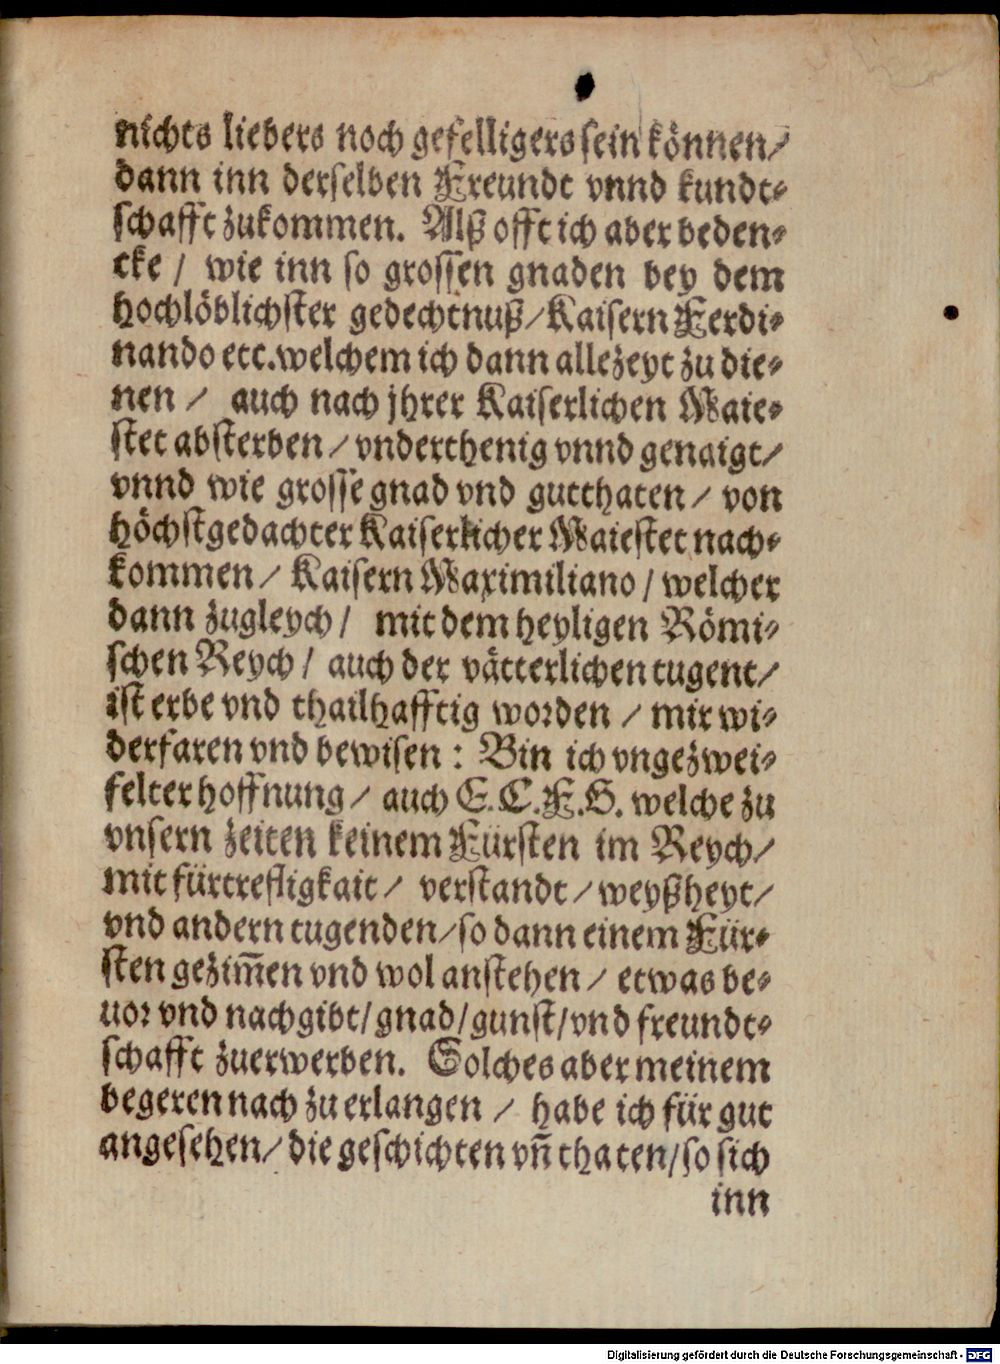 nichts liebers noch gefelligers sein können/
dann inn derselben Freundt vnnd kundt⸗
schafft zukommen. Alß offt ich aber beden⸗
cke / wie inn so grossen gnaden bey dem
hochlöblichster gedechtnuß/Kaisern Ferdi⸗
nando etc.welchem ich dann allezeyt zu die⸗
nen / auch nach jhrer Kaiserlichen Maie⸗
stet absterben / vnderthenig vnnd genaigt/
vnnd wie grosse gnad vnd gutthaten / von
höchstgedachter Kaiserlicher Maiestet nach⸗
kommen / Kaisern Maximiliano / welcher
dann zugleych / mit dem heyligen Römi⸗
schen Reych / auch der vätterlichen tugent/
ist erbe vnd thailhafftig worden / mir wi⸗
derfaren vnd bewisen : Bin ich vngezwei⸗
felter hoffnung / auch E.C.F.G. welche zu
vnsern zeiten keinem Fürsten im Reych/
mit fürtrefligkait / verstandt / weyßheyt/
vnd andern tugenden/so dann einem Für⸗
sten gezim̃en vnd wol anstehen / etwas be⸗
uor vnd nachgibt/gnad/gunst/vnd freundt⸗
schafft zuerwerben. Solches aber meinem
begeren nach zu erlangen / habe ich für gut
angesehen/die geschichten vñ thaten/so sich
inn
Digitalisierung gefördert durch die Deutsche Forschungsgemeinschaft - DFG